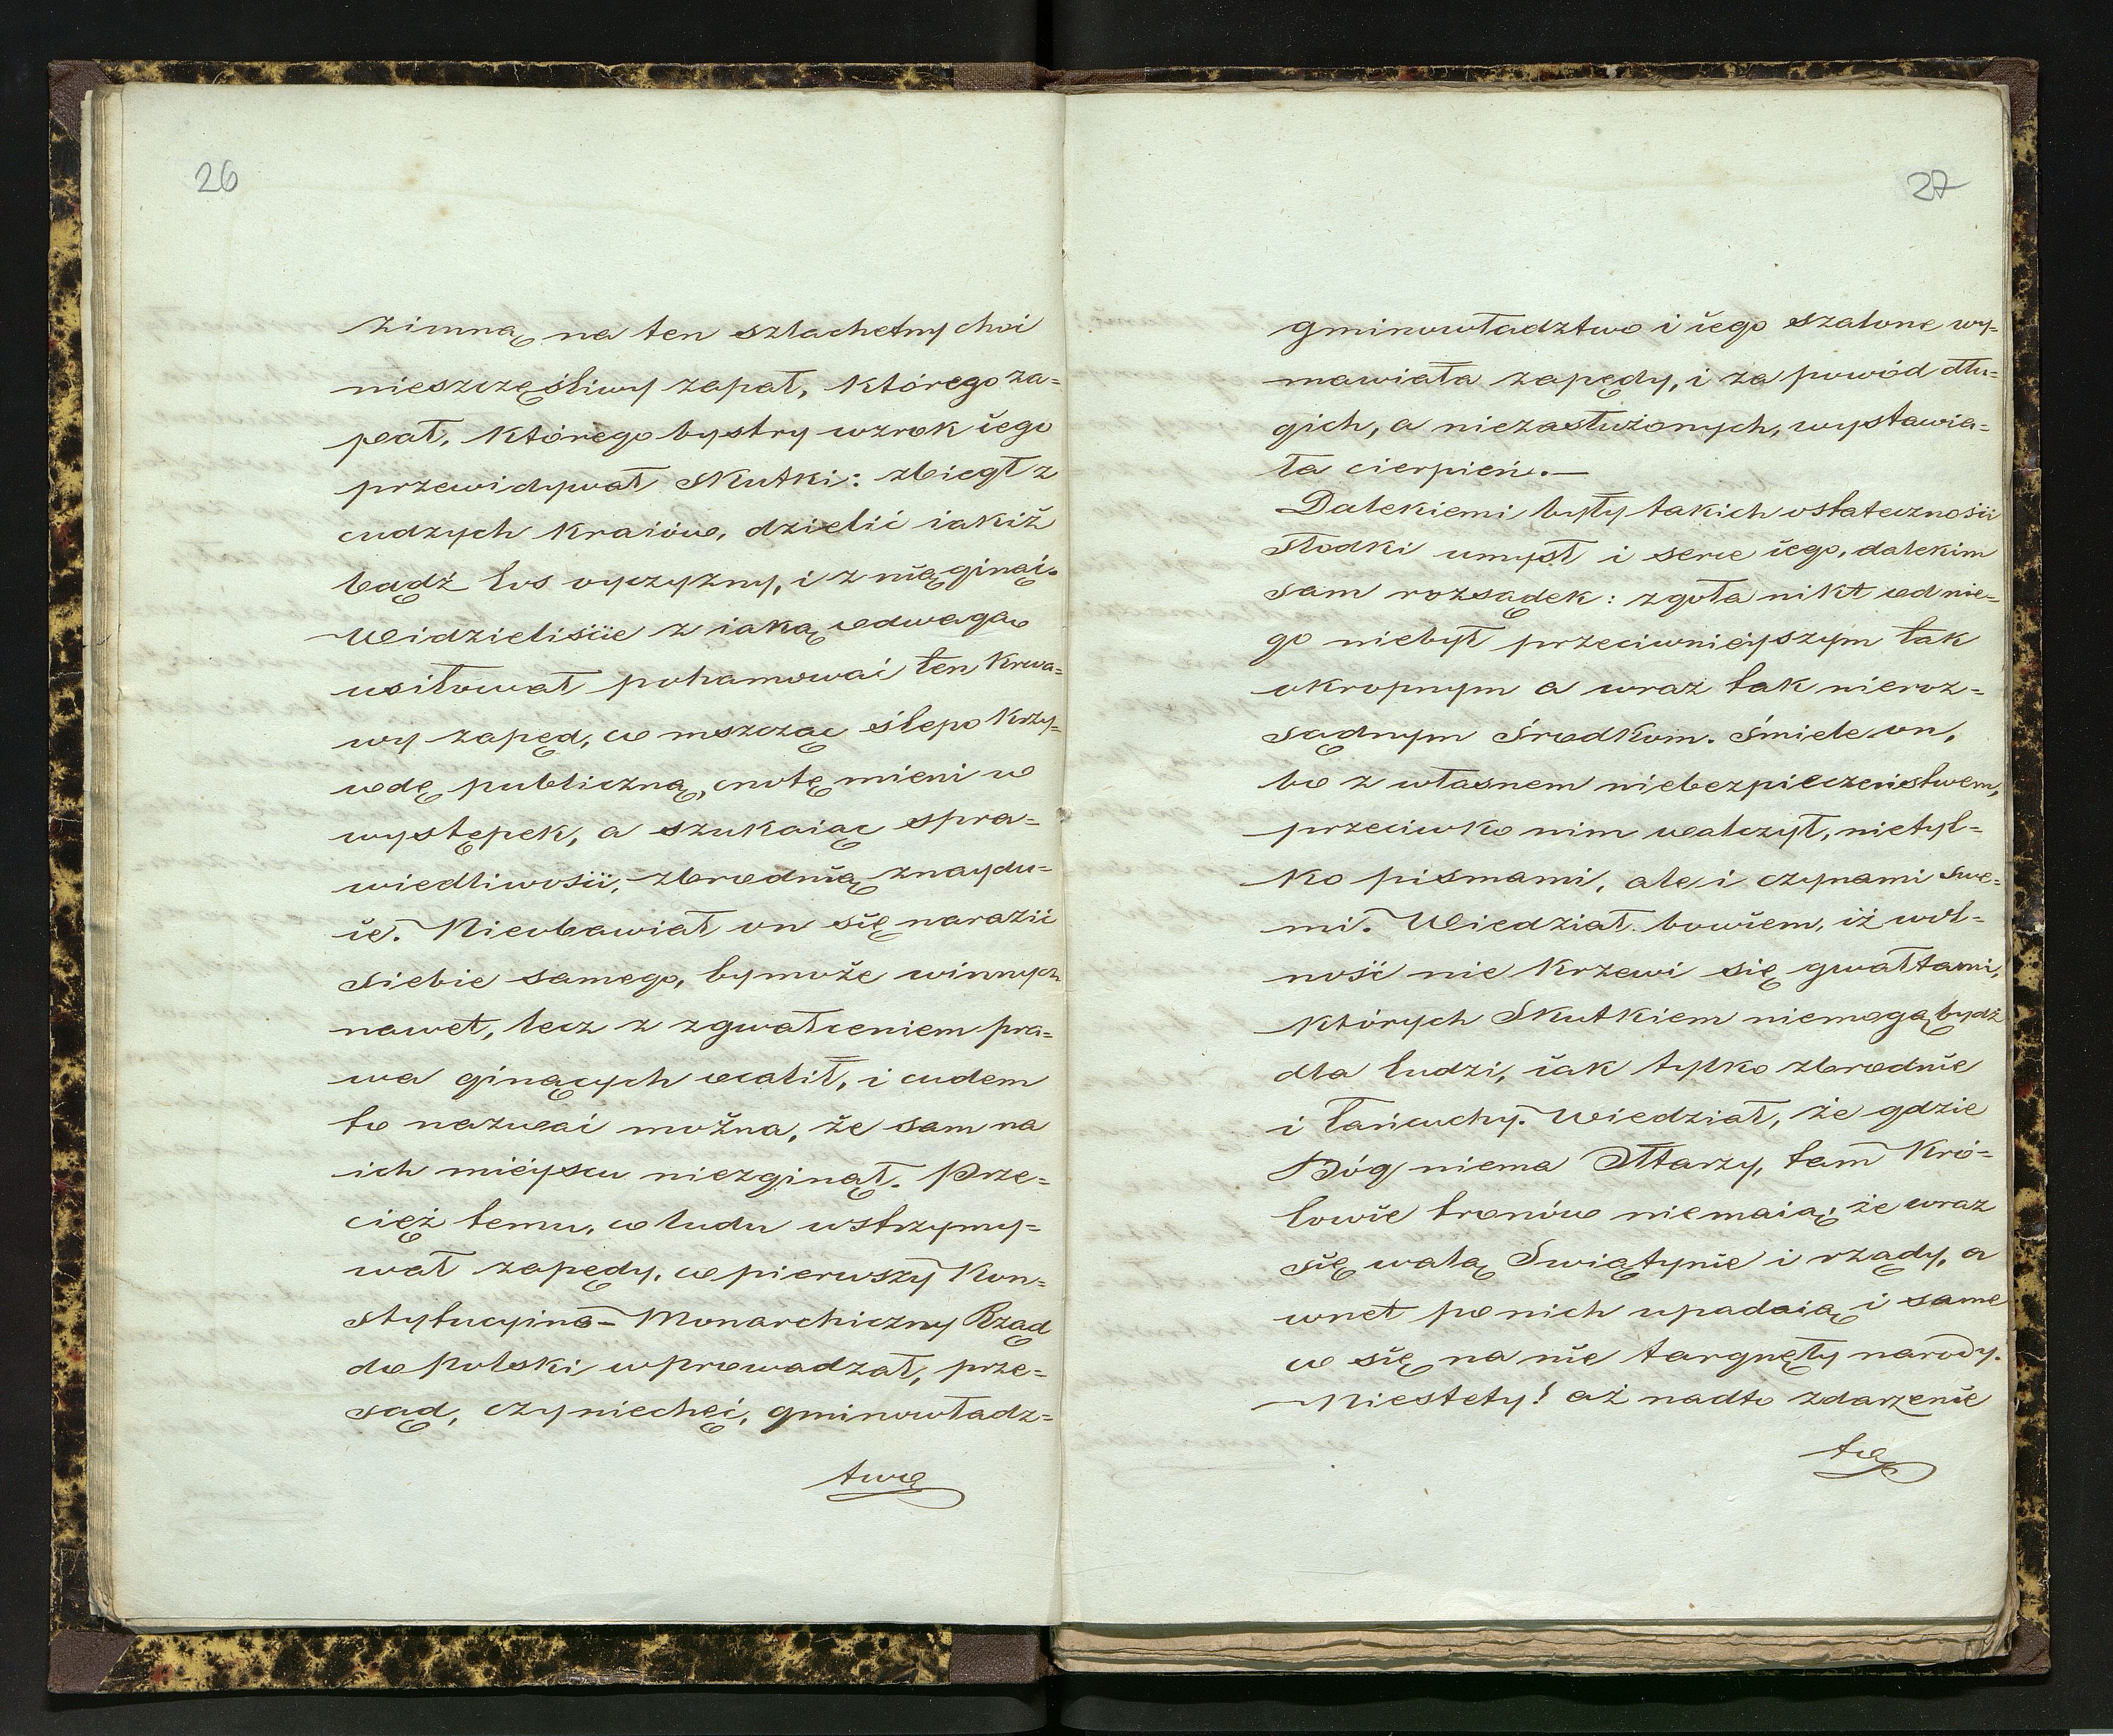 26
zimną na ten szlachetny choć
nieszczęśliwy zapał, którego za-
pał, którego bystry wzrok iego
przewidywał skutki: zbiegł z
cudzych kraiów, dzielić iakiż
bądź los oyczyzny, i z nią ginąć.
Widzieliście z iaką odwagą
usiłował pohamować ten krwa-
wy zapęd, co mszcząc ślepo krzy-
wdę publiczną, cnotę mieni w
występek, a szukaiąc spra-
wiedliwości, zbrodnią znaydu-
ie. Nieobawiał on się narazić
siebie samego, by może winnych
nawet, lecz z zgwałceniem pra-
wa ginących ocalił, i cudem
to nazwać można, że sam na
ich mieyscu niezginął. Prze-
cięż temu, co ludu wstrzymy-
wał zapędy, co pierwszy Kon-
stytucyino-Monarchiczny Rząd
do Polski wprowadzał, prze-
sąd, czy niechęć, gminowładz-
two
27
gminowładztwo i iego szalone wy-
mawiała zapędy, i za powód dłu-
gich, a niezasłużonych, wystawia-
ła cierpień.—
Dalekiemi były takich ostateczności
słodki umysł i serce iego, dalekim
sam rozsądek: zgoła nikt od nie-
go niebył przeciwnieyszym tak
okropnym a wraz tak nieroz-
sądnym środkom. Śmiele on,
bo z własnem niebezpieczeństwem,
przeciwko nim walczył, nietyl-
ko pismami, ale i czynami swe-
mi. Wiedział bowiem, iż wol-
ność nie krzewi się gwałtami,
których skutkiem niemogą bydź
dla ludzi, iak tylko zbrodnie
i łańcuchy. Wiedział, że gdzie
Bóg niema Ołtarzy, tam Kró-
lowie tronów niemaią; że wraz
się walą Swiątynie i rządy, a
wnet po nich upadaią i same
co się na nie targnęły narody.
Niestety! aż nadto zdarzenie
to